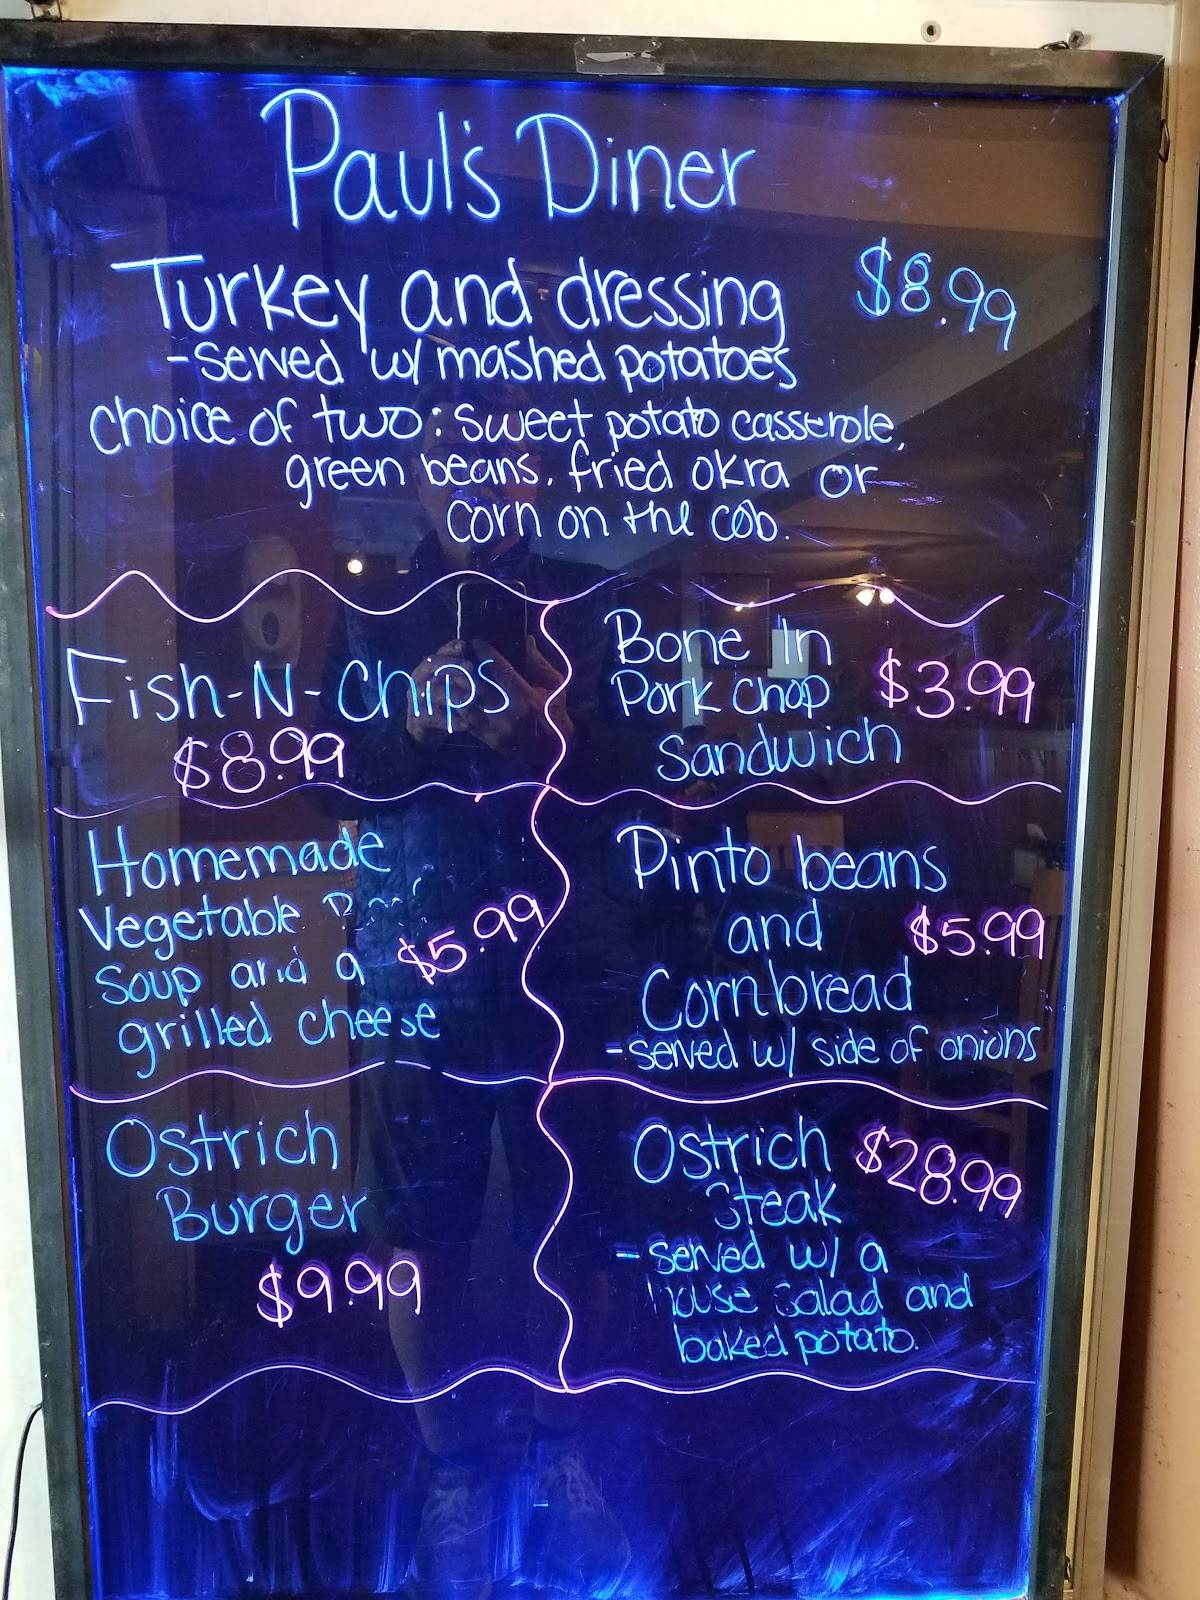 Paul's Diner
Turkey and dressing $8.99
-served w/ mashed potatoes
choice of two: sweet potato casserole,
green beans, fried okra or
corn on the cob.
Fish-N-Chips
$8.99
Bone In
Pork Chop $3.99
Sandwich
Homemade
Vegetable
soup and a $5.99
grilled cheese
Pinto beans
and $5.99
Cornbread
-served w/ side of onions
Ostrich
Burger
$9.99
Ostrich $28.99
Steak
- served w/ a
house salad and
baked potato.